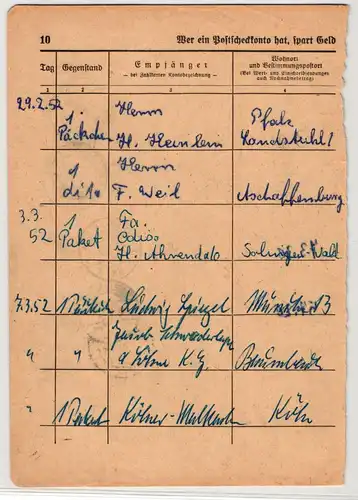 10 Wer ein Postscheckkonto hat, spart Geld
Tag Gegenstand Empfänger Wohnort
— bei Zahlkarten Kontobezeichnung — und Bestimmungspostort
(Bei Wert- und Einschreibsendungen
auch Nachnahmebetrag)
1 2 3 4
29.2.52 1 Herrn Pfalz
Päckchen H. Heinlein Landstuhl
1 Herrn
dito F. Weil Aschaffenburg
3.3. 1 Fa.
52 Paket H. Ahrendab Solingen-Wald
7.3.52 1 Ludwig Spiegel München
" " & Söhne K.G.
" 1 Paket Kölner Köln